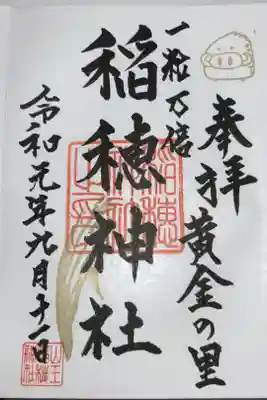 奉拝 黄金の里
一粒万倍
稲穂神社
令和元年九月十一日